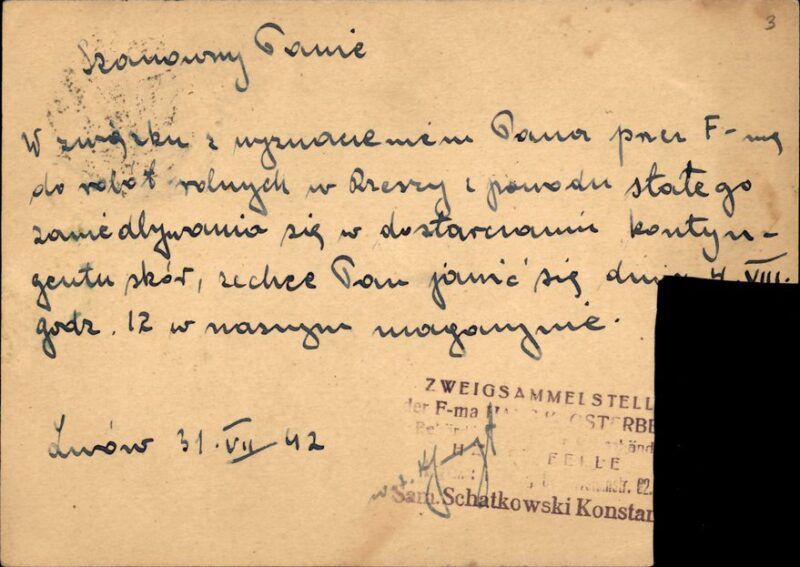 3
Szanowny Panie
W związku z wyznaczeniem Pana przez F-mę
do robót rolnych w Rzeszy i powodu stałego
zaniedbywania się w dostarczaniu kontyn-
gentu skór, zechce Pan jawić się dnia 4. VIII.
godz. 12 w naszym magazynie.
Lwów 31. VII 42
ZWEIGSAMMELSTELL
der F-ma OSTERBE
FELLE
str. 82.
Sam. Schatkowski Konstan